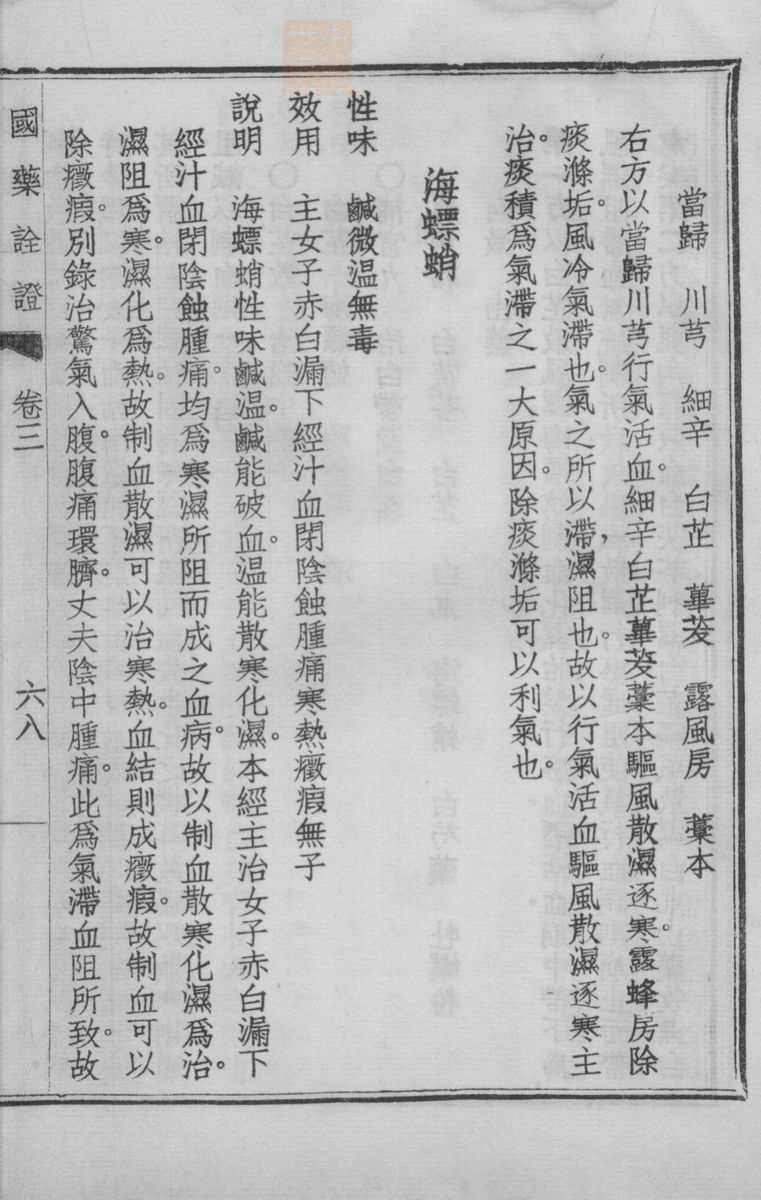 當歸　川芎　細辛　白芷　蓽茇　露風房　藁本
右方以當歸川芎行氣活血。細辛白芷蓽茇藁本驅風散濕逐寒。露蜂房除
痰滌垢。風冷氣滯也。氣之所以滯，濕阻也。故以行氣活血驅風散濕逐寒主
治。痰積爲氣滯之一大原因。除痰滌垢可以利氣也。
海螵蛸
性味　鹹微温無毒
效用　主女子赤白漏下經汁血閉陰蝕腫痛寒熱癥瘕無子
說明　海螵蛸性味鹹温。鹹能破血。温能散寒化濕。本經主治女子赤白漏下
經汁血閉陰蝕腫痛。均爲寒濕所阻而成之血病。故以制血散寒化濕爲治。
濕阻爲寒。濕化爲熱。故制血散濕可以治寒熱。血結則成癥瘕。故制血可以
除癥瘕。別錄治驚氣入腹。腹痛環臍。丈夫陰中腫痛。此爲氣滯血阻所致。故
國藥詮證　卷三　六八